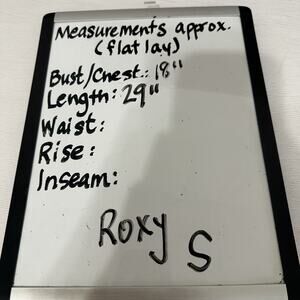 Measurements approx.
(flat lay)
Bust/Chest: 18"
Length: 29"
Waist:
Rise:
Inseam:
Roxy S